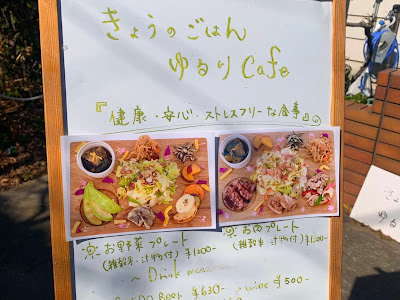 きょうのごはん
ゆるり Cafe
『健康・安心・ストレスフリーな食事』の
お野菜プレート
(雑穀米・汁物付) ¥1200-
お肉プレート
(雑穀米・汁物付)
~ Drink menu
Beer ¥630-
・wine ¥500-
ゆる